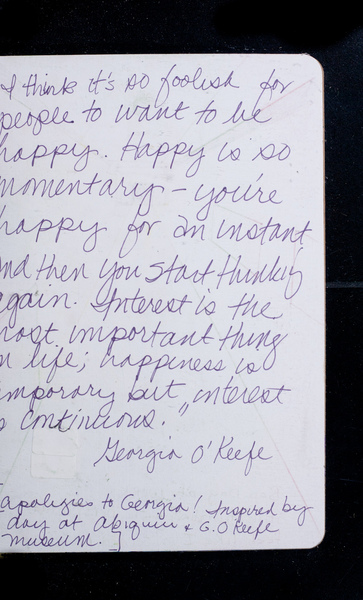 I think it's so foolish for
people to want to be
happy. Happy is so
momentary - you're
happy for an instant
and then you start thinking
again. Interest is the
most important thing
in life; happiness is
temporary but interest
is continuous."
Georgia O'Keefe
[apologies to Georgia! Inspired by
day at Abiquiu & G. O'Keefe
museum.]